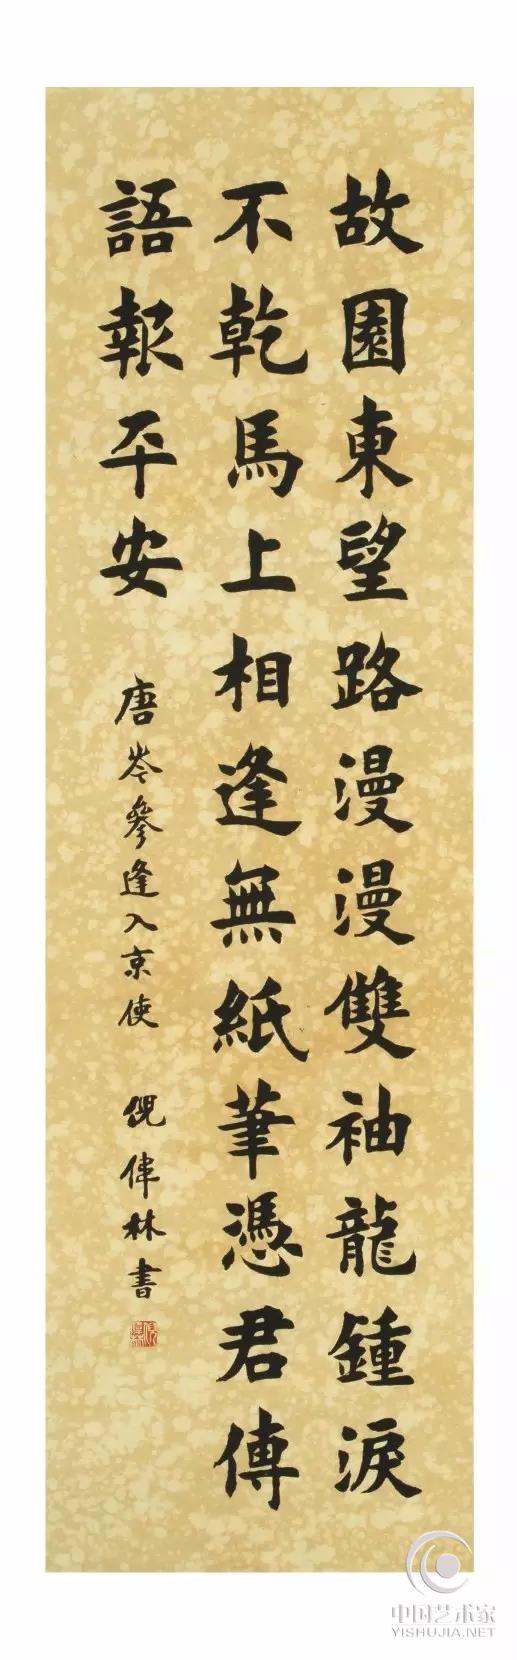 故園東望路漫漫雙袖龍鍾淚
不乾馬上相逢無紙筆憑君傳
語報平安
唐岑參逢入京使 倪偉林書
中国艺术家
YISHUJIA.NET